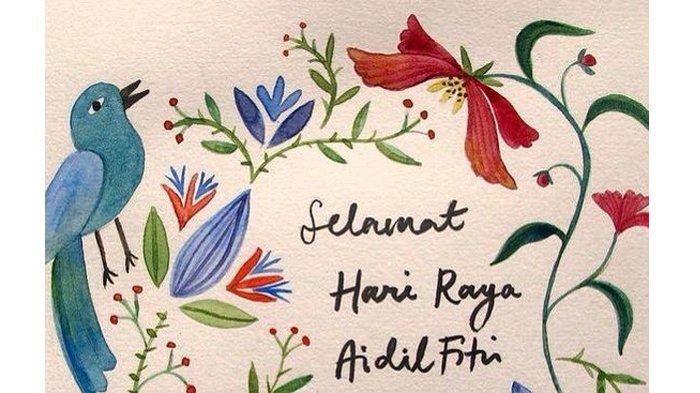 Selamat
Hari Raya
Aidil Fitri